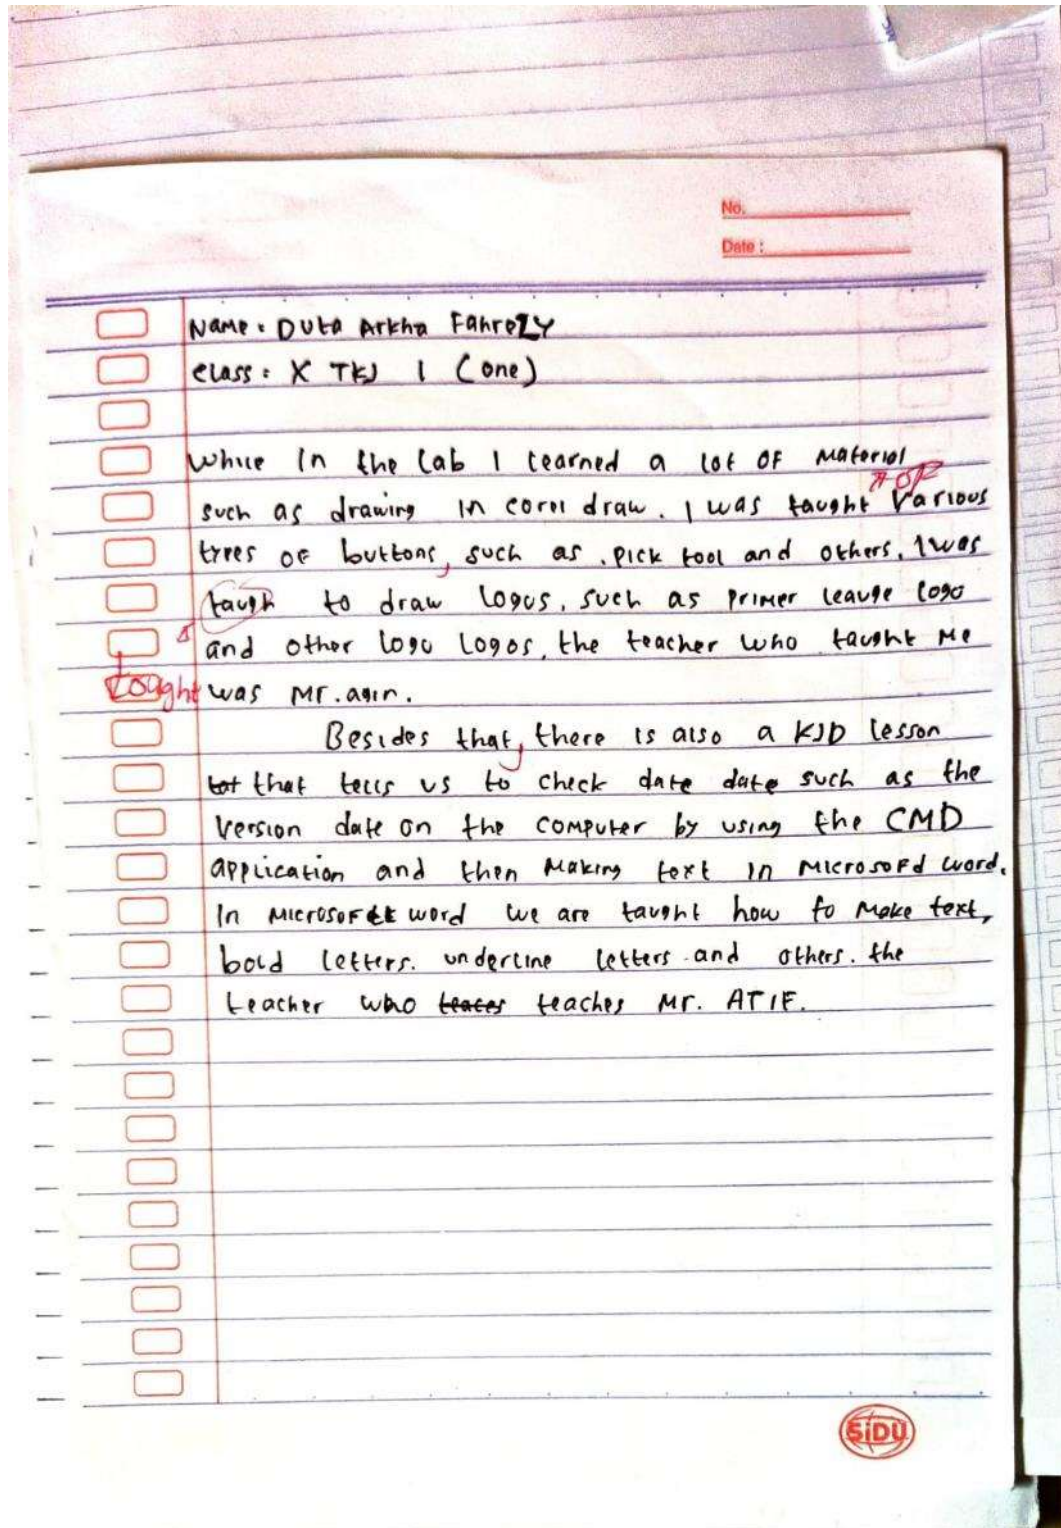 No.
Date :
Name : Duta Arkha Fahrezy
Class : X TKJ 1 (one)
While in the lab I learned a lot of material
of
such as drawing in corel draw. I was taught various
types of buttons, such as . pick tool and others. I was
taugh to draw logos, such as primer leauge logo
and other logo logos, the teacher who taught me
taught was Mr. agin.
Besides that, there is also a KJD lesson
tot that tells us to check date date such as the
version date on the computer by using the CMD
application and then making text in microsofd word.
In microsoft word we are taught how to make text,
bold letters. underline letters and others. the
teacher who teaces teaches Mr. ATIF.
SiDU